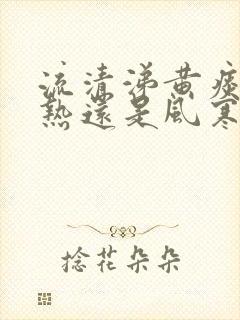 流清涕黄痰
熱還是風寒
捻花朵朵